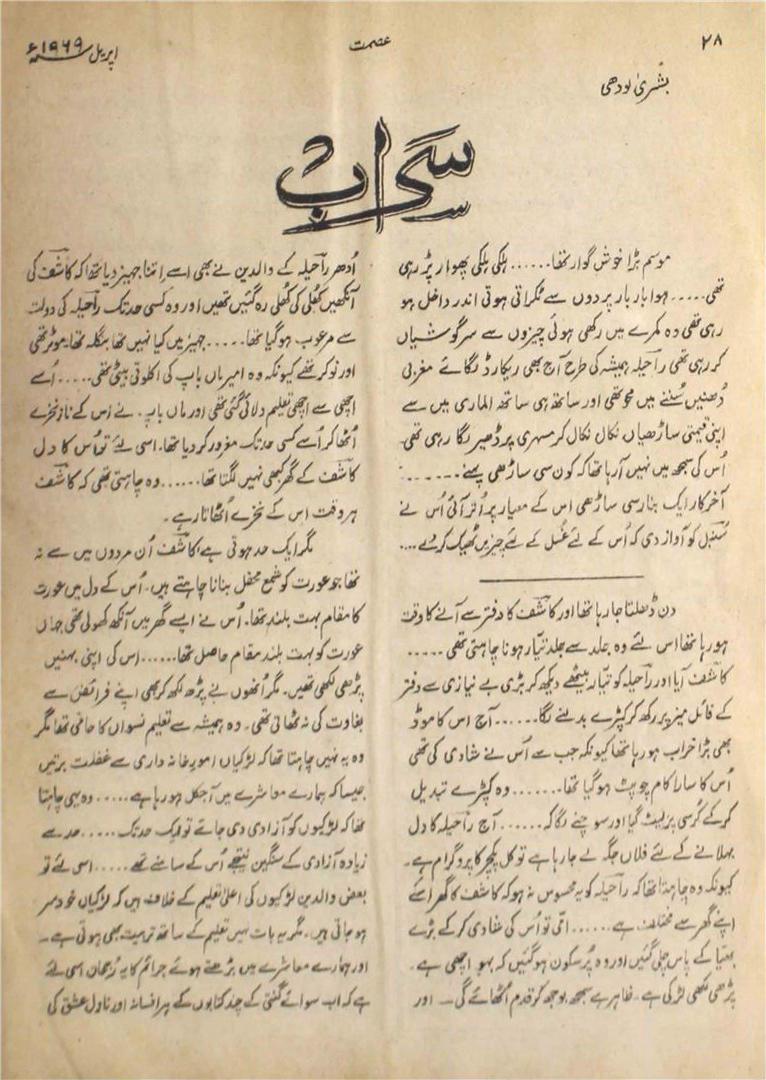 ۲۸
عصمت
اپریل ۱۹۶۹ء
بشریٰ لودھی
سراب
موسم بڑا خوش گوار تھا...... ہلکی ہلکی پھوار پڑ رہی
تھی..... ہوا بار بار پردوں سے ٹکراتی ہوئی اندر داخل ہو
رہی تھی وہ کمرے میں رکھی ہوئی چیزوں سے سرگوشیاں
کر رہی تھی راحیلہ ہمیشہ کی طرح آج بھی ریکارڈ لگائے مغربی
دُھنیں سُننے میں محو تھی اور ساتھ ہی ساتھ الماری میں سے
اپنی قیمتی ساڑھیاں نکال نکال کر مسہری پر ڈھیر لگا رہی تھی۔
اُس کی سمجھ میں نہیں آرہا تھا کہ کون سی ساڑھی پہنے.......
آخرکار ایک بنارسی ساڑھی اس کے معیار پر اُتر آئی اُس نے
سُنبل کو آواز دی کہ اُس کے لئے غسل کے لئے چیزیں ٹھیک کر دے....
دن ڈھلتا جارہا تھا اور کاشف کا دفتر سے آنے کا وقت
ہو رہا تھا اس لئے وہ جلد سے جلد تیار ہونا چاہتی تھی.....
کاشف آیا اور راحیلہ کو تیار بیٹھے دیکھ کر بڑی بے نیازی سے دفتر
کے فائل میز پر رکھ کر کپڑے بدلنے لگا...... آج اس کا موڈ
بھی بڑا خراب ہو رہا تھا کیونکہ جب سے اُس نے شادی کی تھی
اُس کا سارا کام چوپٹ ہوگیا تھا....... وہ کپڑے تبدیل
کرکے کُرسی پر لیٹ گیا اور سوچنے لگا کہ...... آج راحیلہ کا دل
بہلانے کے لئے فلاں جگہ لے جا رہا ہے تو کل پکچر کا پروگرام ہے۔
کیونکہ وہ چاہتا تھا کہ راحیلہ کو یہ محسوس نہ ہو کہ کاشف کا گھر اُسکے
اپنے گھر سے مختلف ہے...... امّی تو اُس کی شادی کرکے بڑے
بھیا کے پاس چلی گئیں اور وہ پُرسکون ہوگئیں کہ بہو اچھی ہے۔
پڑھی لکھی لڑکی ہے۔ ظاہر ہے سمجھ بوجھ کر قدم اُٹھائے گی۔ اور
اُدھر راحیلہ کے والدین نے بھی اسے اِتنا جہیز دیا تھا کہ کاشف کی
آنکھیں کُھلی کی کُھلی رہ گئیں تھیں اور وہ کسی حد تک راحیلہ کی دولت
سے مرعوب ہوگیا تھا..... جہیز میں کیا نہیں تھا بنگلہ تھا، موٹر تھی
اور نوکر تھے کیونکہ وہ امیر ماں باپ کی اکلوتی بیٹی تھی..... اُسے
اچھی سے اچھی تعلیم دلائی گئی تھی اور ماں باپ نے اس کے ناز نخرے
اُٹھا کر اُسے کسی حد تک مغرور کر دیا تھا۔ اسی لئے تو اُس کا دل
کاشف کے گھر کبھی نہیں لگتا تھا...... وہ چاہتی تھی کہ کاشف
ہر وقت اس کے نخرے اُٹھاتا رہے۔
مگر ایک حد ہوتی ہے کاشف اُن مردوں میں سے نہ
تھا جو عورت کو شمع محفل بنانا چاہتے ہیں۔ اُس کے دل میں عورت
کا مقام بہت بلند تھا۔ اُس نے ایسے گھر میں آنکھ کھولی تھی جہاں
عورت کو بہت بلند مقام حاصل تھا...... اس کی اپنی بہنیں
پڑھی لکھی تھیں۔ مگر اُنھوں نے پڑھ لکھ کر بھی اپنے فرائض سے
بغاوت کی نہ ٹھانی تھی۔ وہ ہمیشہ سے تعلیم نسواں کا حامی تھا مگر
وہ یہ نہیں چاہتا تھا کہ لڑکیاں امور خانہ داری سے غفلت برتیں
جیسا کہ ہمارے معاشرے میں آجکل ہو رہا ہے..... وہ یہی چاہتا
تھا کہ لڑکیوں کو آزادی دی جائے تو ایک حد تک..... حد سے
زیادہ آزادی کے سنگین نتیجے اُس کے سامنے تھے.... اسی لئے تو
بعض والدین لڑکیوں کی اعلیٰ تعلیم کے خلاف ہیں کہ لڑکیاں خود سر
ہو جاتی ہیں۔ مگر یہ بات نہیں تعلیم کے ساتھ تربیت بھی ہوتی ہے۔
اور ہمارے معاشرے میں بڑھتے ہوئے جرائم کا یہ رُجحان اسی لئے
ہے کہ اب سوائے گنتی کے چند کتابوں کے ہر افسانہ اور ناول عشق کی